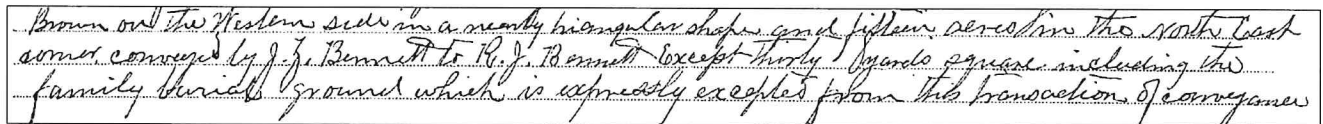 Brown on the Western side in a nearly triangular shape and fifteen acres in the North East
corner conveyed by J. Z. Bennett to R. J. Bennett Except thirty yards square including the
family burial ground which is expressly excepted from this transaction of conveyance